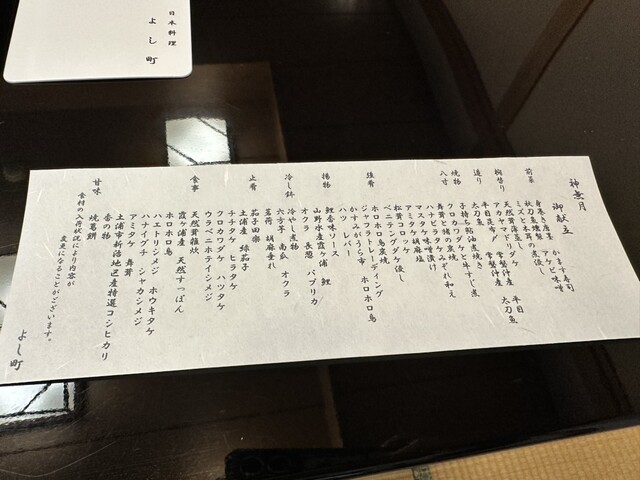 日本料理
よし町
神無月
御献立
前菜
かます寿司
アケビ味噌
秋刀魚燻製
椀替り
天然茸土瓶
アカヤマドリダケ 平目
太刀魚
造り
平目昆布〆 常磐沖産
太刀魚 常磐沖産
焼物
子持ち鮎油煮焼き
八寸
クロカワダケ 牛すじ煮
舞茸と猪の炭焼
ハナビラタケみぞれ和え
マスタケ味噌漬け
アミタケ胡麻
松茸コロッケ
ベニテングダケ
強肴
ホロホロ鳥炭焼
ジャフラトレーディング
かすみがうら市 ホロホロ鳥
ハツ レバー
揚物
鯉香味ソース
山野水産霞ヶ浦 鯉
オクラ 長葱 パプリカ
冷し鉢
冷やし煮物
六方芋 南瓜 オクラ
茗荷 胡麻垂れ
止肴
茄子田楽
土浦産 緑茄子
食事
チチタケ ヒラタケ
クロカワダケ ハツタケ
ウラベニホテイシメジ
天然茸雑炊
霞ヶ浦産 天然すっぽん
ホロホロ鳥
ハエトリシメジ ホウキタケ
ハナイグチ シャカシメジ
アミタケ 舞茸
土浦市新治地区産特選コシヒカリ
香の物
甘味
焼葛餅
食材の入荷状況により内容が
変更になることがございます。
よし町